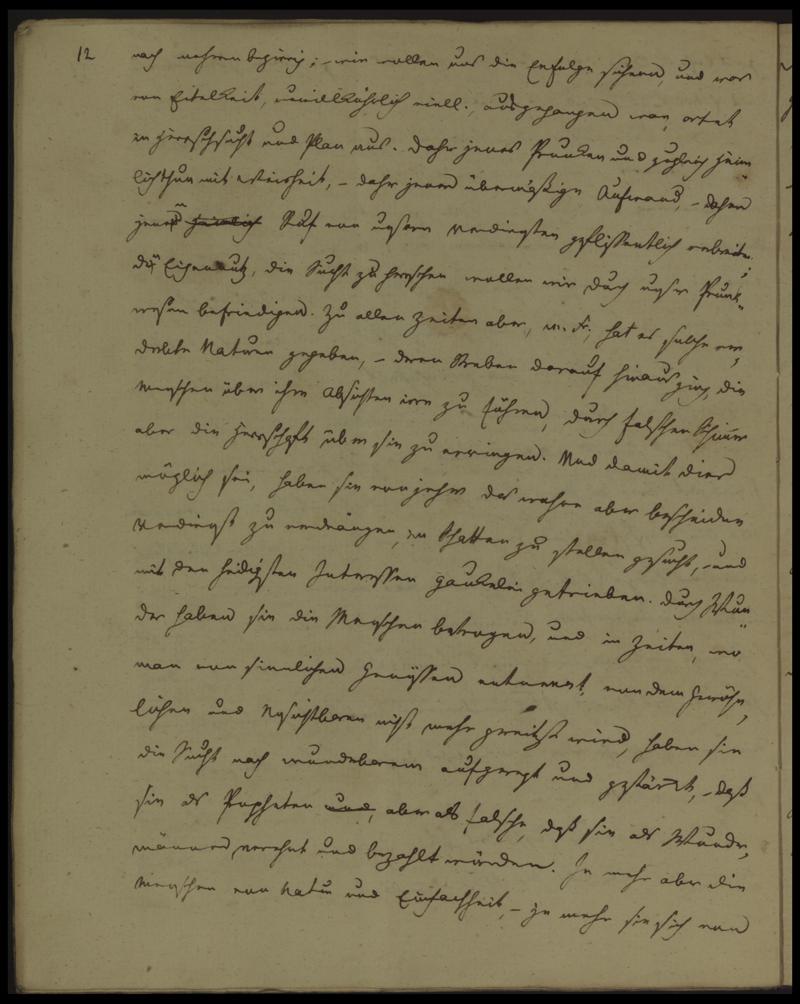 12
nach mehren begierig; – wir wollen uns die Erfolge sichern, und was
von Eitelkeit, unwillkührlich viell. ausgegangen war, artet
in Herrschsucht und Plan aus. Daher jenes Prunken und zugleich Heim
lichthun mit Weisheit, – daher jener übermäßige Aufwand, – daher
jener heimlich Ruf von unsern Verdiensten geflissentlich verbreitet;
den Eigennutz, die Sucht zu herrschen wollen wir durch unser Prunk-
wesen befriedigen. Zu allen Zeiten aber, m. Fr., hat es solche ver-
derbte Naturen gegeben, – deren Streben darauf hinausging, die
Menschen über ihre Absichten irre zu führen, durch falschen Schimmer
aber die Herrschaft über sie zu erringen. Und damit dies
möglich sei, haben sie von jeher das wahre aber bescheidne
Verdienst zu verdrängen, in Schatten zu stellen gesucht, und
mit den heiligsten Interessen Gaukelei getrieben. Durch Wun-
der haben sie die Menschen betrogen, und in Zeiten, wo
man von sinnlichen Genüssen entnervt, von dem Gewöhn-
lichen und Sichtbaren nicht mehr gereitzt wird, haben sie
die Sucht nach wunderbarem aufgeregt und gestärkt, – daß
sie als Propheten und, aber als falsche, daß sie als Wunder-
männer verehrt und bezahlt würden. Je mehr aber die
Menschen von Natur und Einfachheit, – je mehr sie sich von